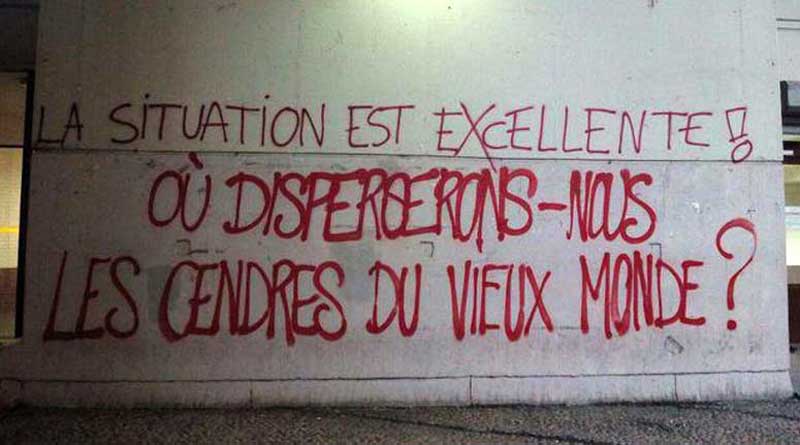 LA SITUATION EST EXCELLENTE !
OÙ DISPERSERONS-NOUS
LES CENDRES DU VIEUX MONDE ?